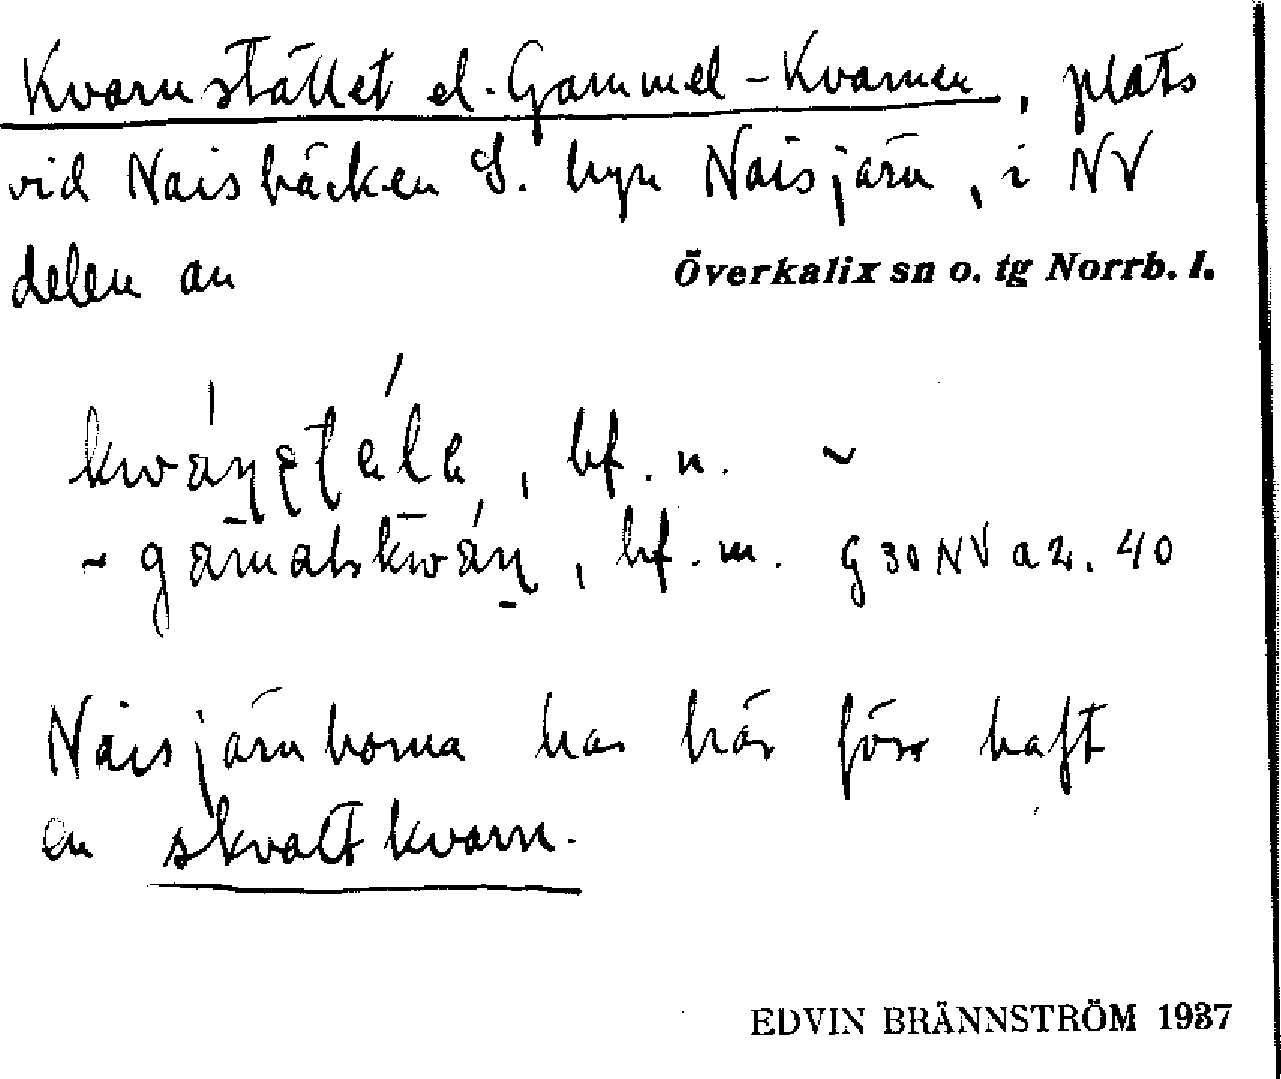 Kvarnstället el. Gammel-Kvarnen, plats
vid Naisbäcken S. byn Naisjärv, i NV
delen av Överkalix sn o. tg Norrb. l.
bf. n. ~
~ bf. m. G 30 NV a 2. 40
Naisjärvborna har här förr haft
en skvaltkvarn.
EDVIN BRÄNNSTRÖM 1937